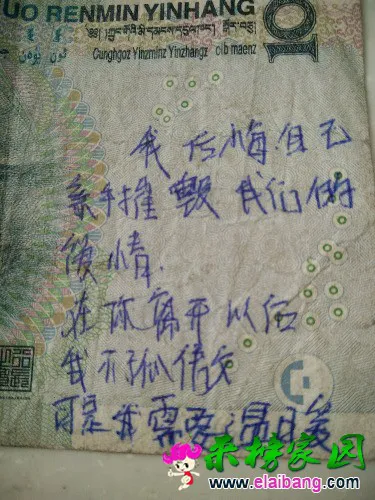 UO RENMIN YINHANG
Cunghgoz Yinzminz Yinzhangz cib maenz
10
我后悔自己
亲手摧毁我们的
爱情.
在你离开以后
我不孤倩文
可是我需要温暖
来榜家园
www.elaibang.com